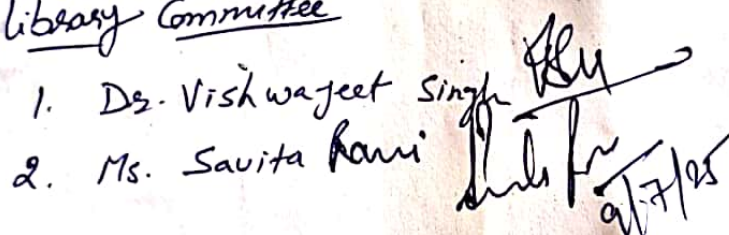 Library Committee
1. Dr. Vishwajeet Singh
2. Ms. Savita Rani
9/7/25